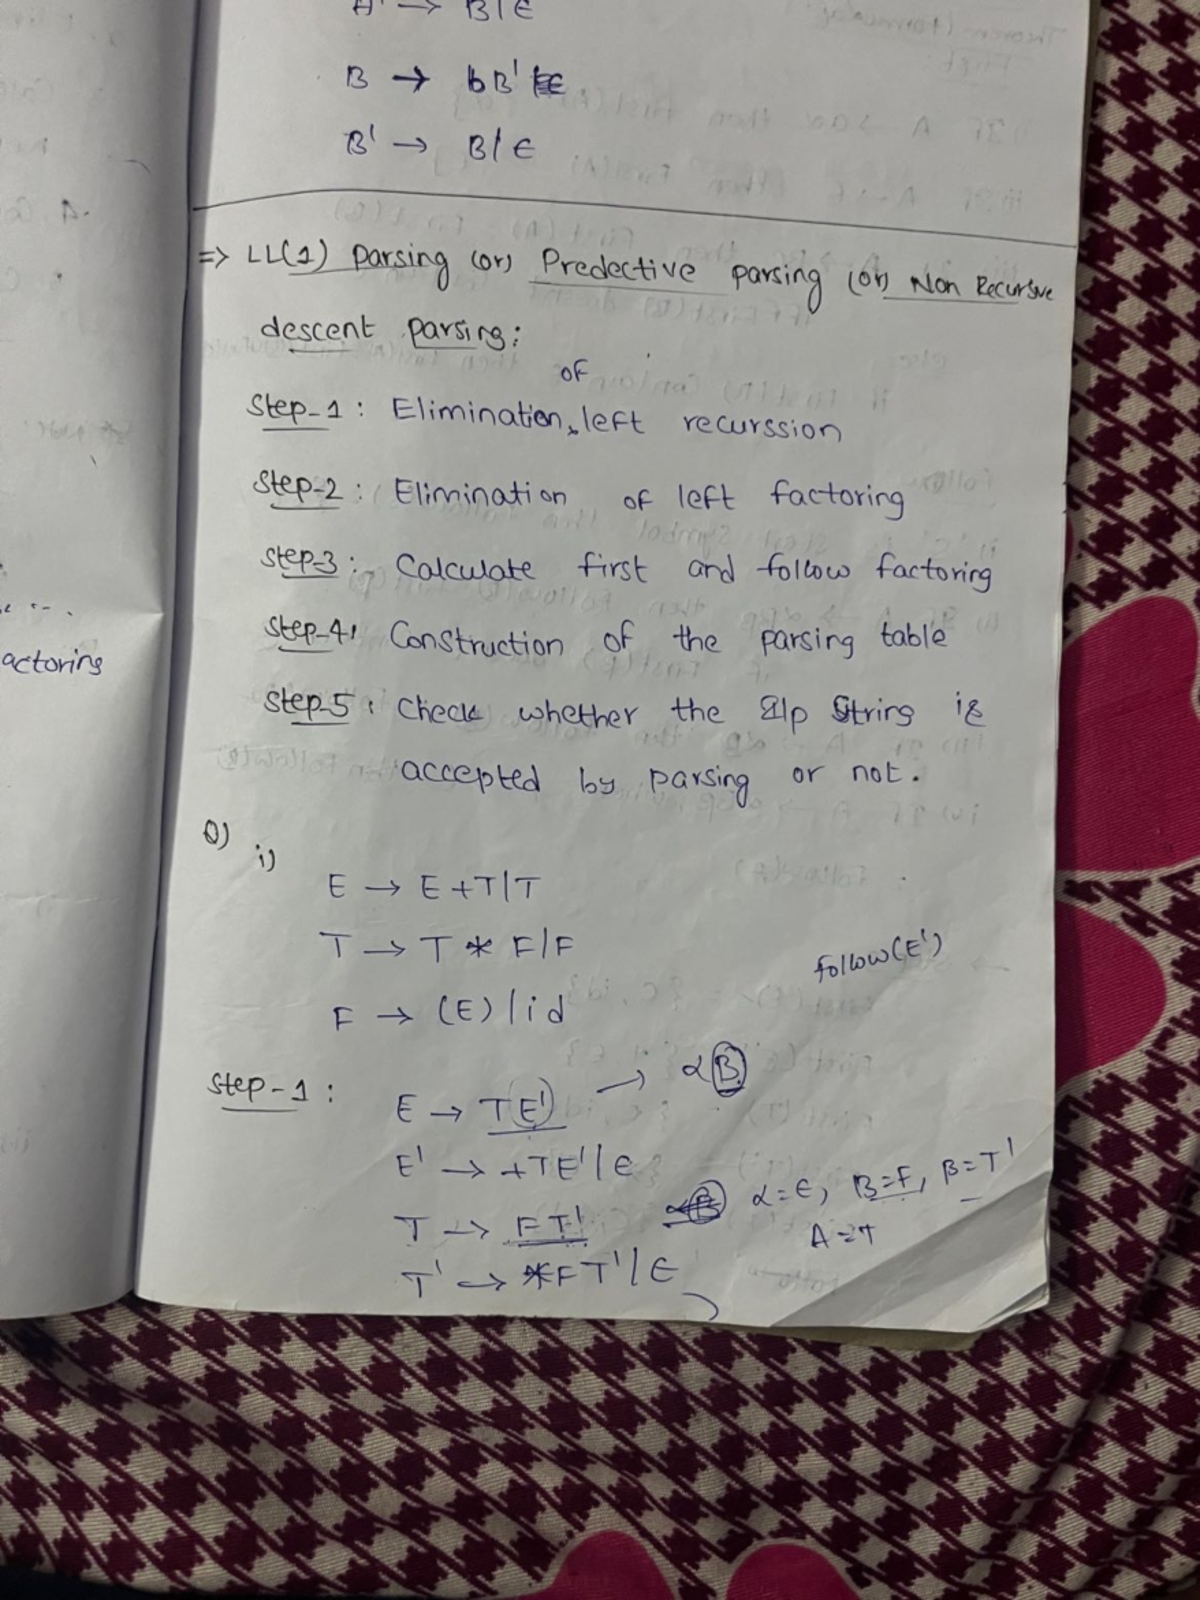 A' → B/ε
B → bB'
B' → B/ε
=> LL(1) parsing (or) Predective parsing (or) Non Recursive
descent parsing:
of
Step-1: Elimination left recurssion
Step-2: Elimination of left factoring
Step-3: Calculate first and follow factoring
actoring
Step-4: Construction of the parsing table
Step-5: Check whether the I/p String is
accepted by parsing or not.
Q) i)
E → E+T/T
T → T * F/F
follow(E')
F → (E)/id
Step-1:
E → TE' → αB
E' → +TE'/ε
T → FT' α=ε, B=F, β=T'
A=T
T' → *FT'/ε